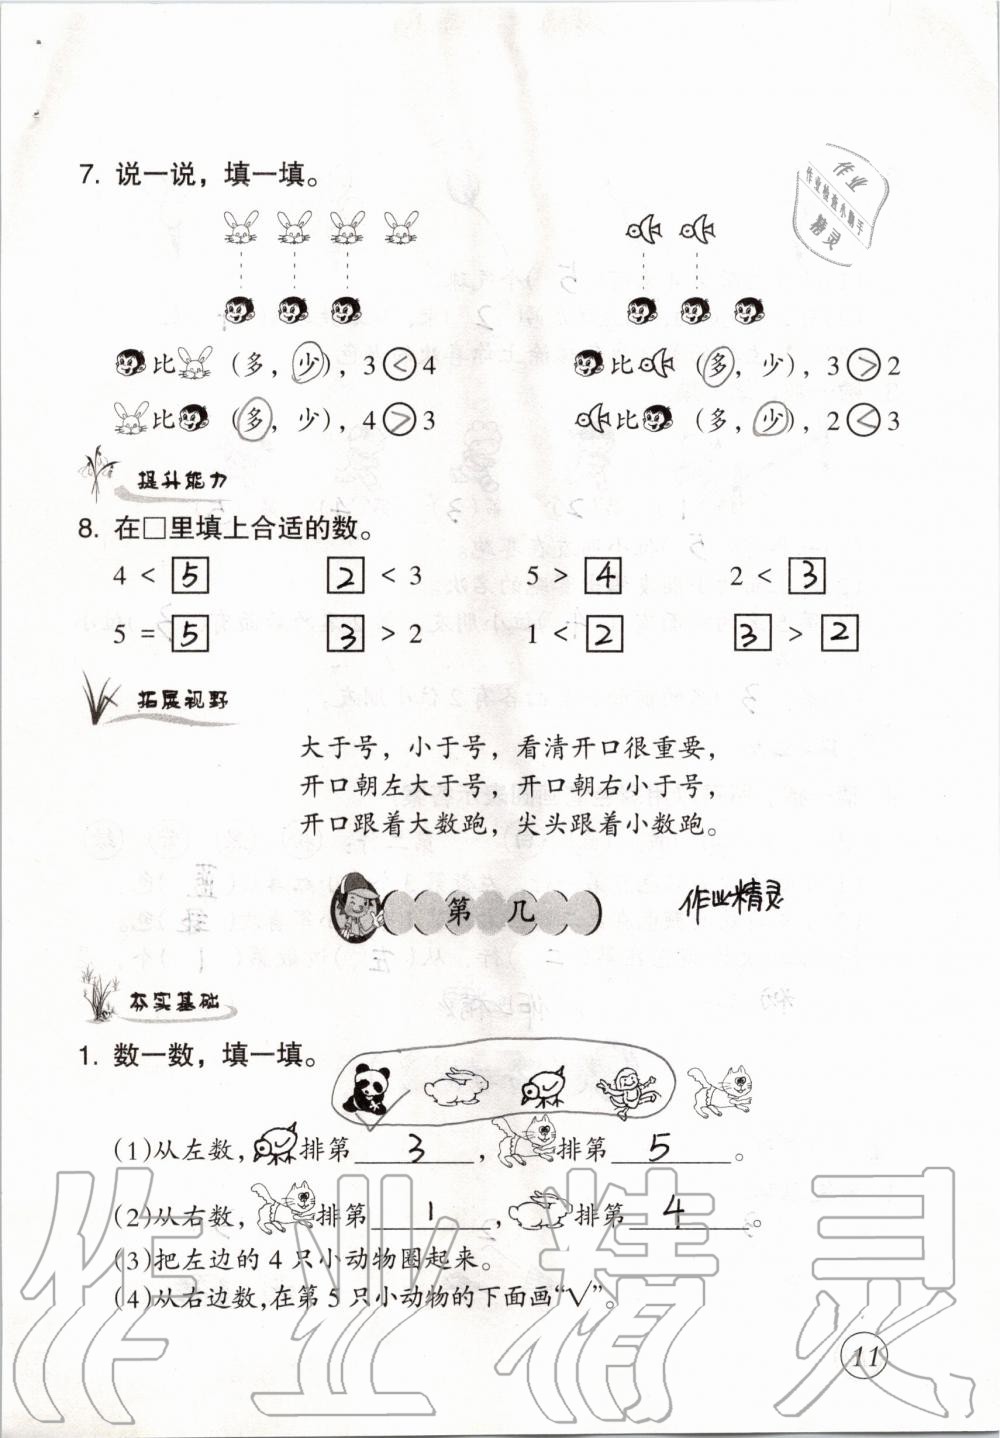 作业
作业检查小助手
精灵
7. 说一说，填一填。
比 (多，少)，3<4 比 (多，少)，3>2
比 (多，少)，4>3 比 (多，少)，2<3
提升能力
8. 在□里填上合适的数。
4 < 5 2 < 3 5 > 4 2 < 3
5 = 5 3 > 2 1 < 2 3 > 2
拓展视野
大于号，小于号，看清开口很重要，
开口朝左大于号，开口朝右小于号，
开口跟着大数跑，尖头跟着小数跑。
第 几
作业精灵
夯实基础
1. 数一数，填一填。
(1)从左数，排第 3 ，排第 5 。
(2)从右数，排第 1 ，排第 4 。
(3)把左边的 4 只小动物圈起来。
(4)从右边数，在第 5 只小动物的下面画“√”。
作业精灵
11